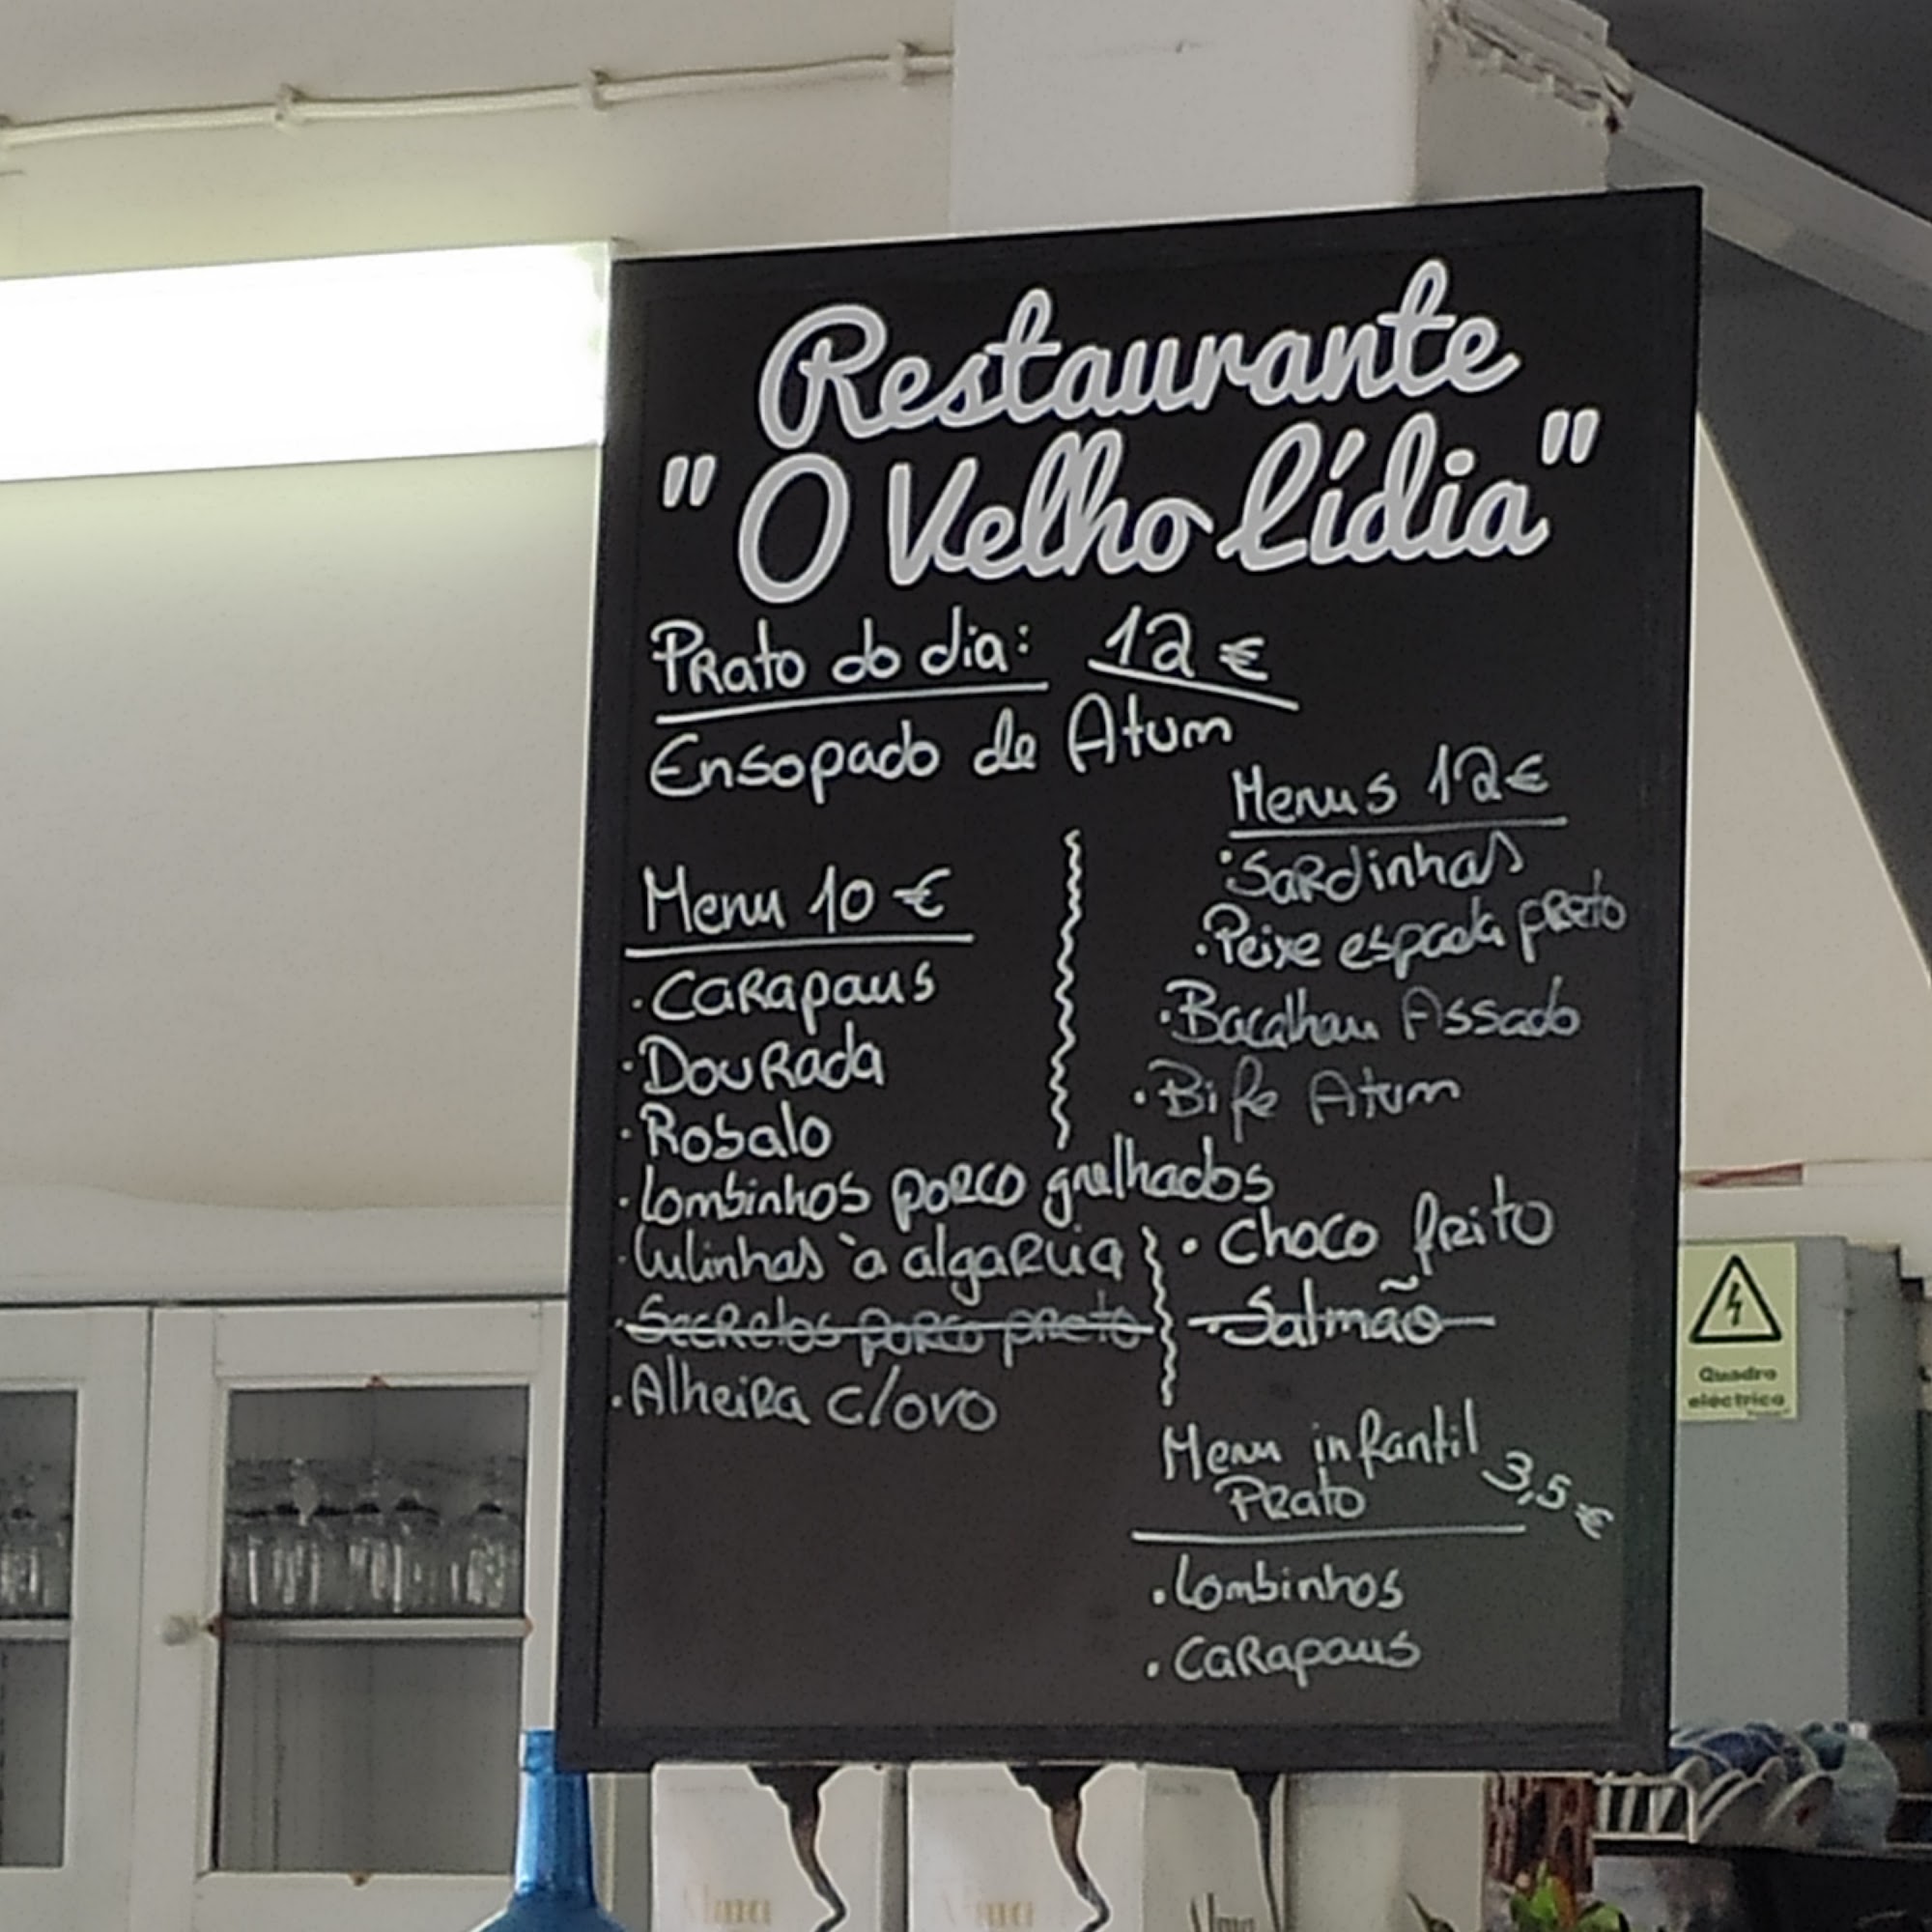 Restaurante
" O Velho Lídia "
Prato do dia: 12 €
Ensopado de Atum
Menu 10 €
· Carapaus
· Dourada
· Robalo
· Lombinhos porco grelhados
· Lulinhas à algarvia
· Secretos porco preto
· Alheira c/ovo
Menus 12€
· Sardinhas
· Peixe espada preto
· Bacalhau Assado
· Bife Atum
· Choco frito
· Salmão
Menu infantil 3,5 €
Prato
· Lombinhos
· Carapaus
Quadro
eléctrico